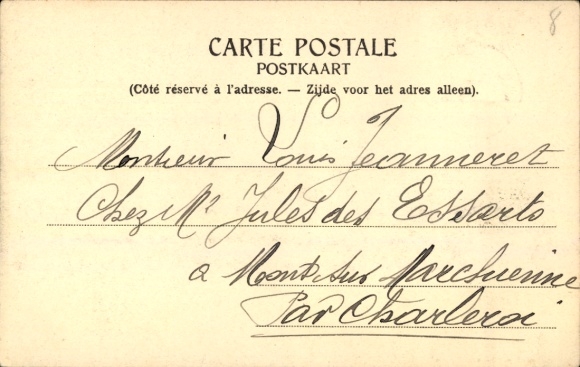 8
CARTE POSTALE
POSTKAART
(Côté réservé à l'adresse. — Zijde voor het adres alleen).
Monsieur Louis Jeanneret
Chez Mr Jules des Essarts
a Mont sur Marchienne
Par Charleroi